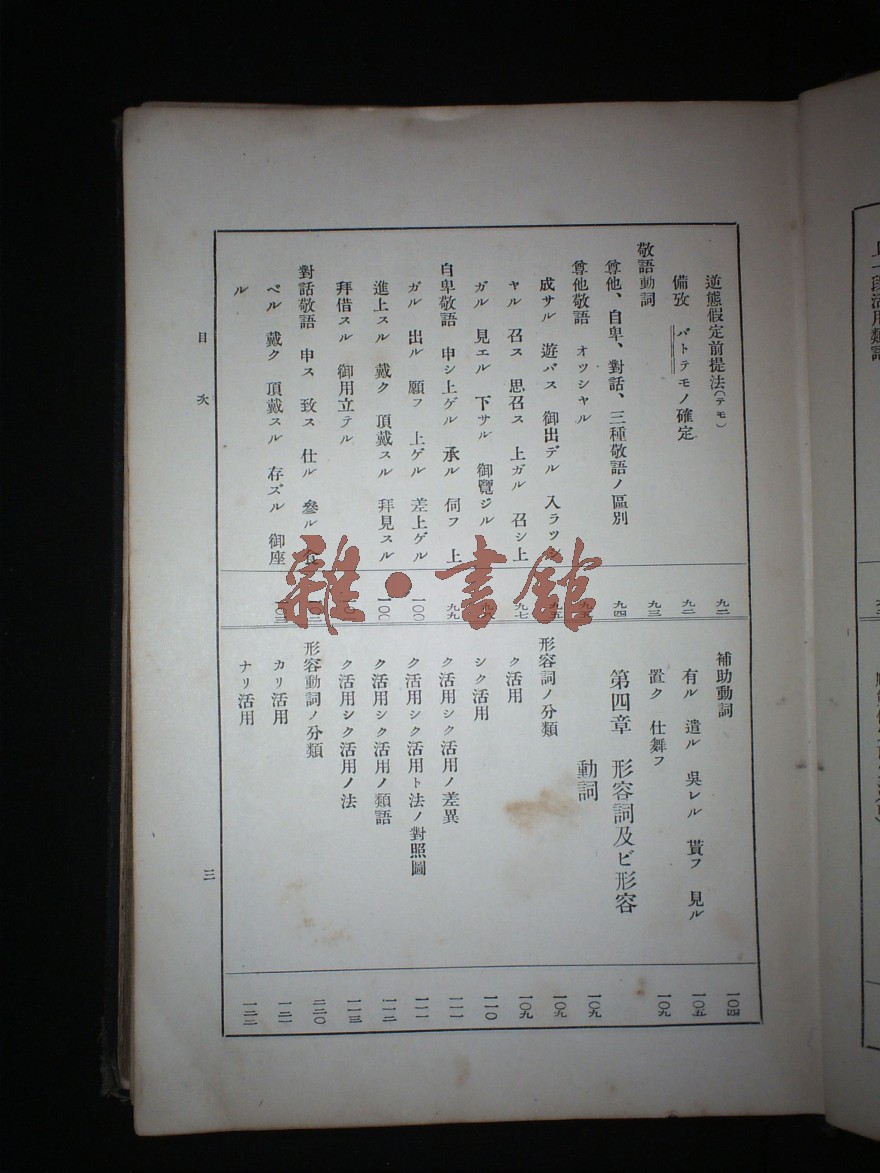 逆態假定前提法(テモ)
九二
備攷 バトテモノ確定
九二
敬語動詞
九三
尊他、自卑、對話、三種敬語ノ區別
九四
尊他敬語 オツシヤル
成サル 遊バス 御出デル 入ラツシ
ヤル 召ス 思召ス 上ガル 召シ上
九七
ガル 見エル 下サル 御覽ジル
自卑敬語 申シ上ゲル 承ル 伺フ 上
九九
ガル 出ル 願フ 上ゲル 差上ゲル
一〇〇
進上スル 戴ク 頂戴スル 拜見スル
一〇〇
拜借スル 御用立テル
對話敬語 申ス 致ス 仕ル 參ル 食
ベル 戴ク 頂戴スル 存ズル 御座
ル
補助動詞
一〇四
有ル 遣ル 吳レル 貰フ 見ル
一〇五
置ク 仕舞フ
一〇九
第四章 形容詞及ビ形容
動詞
一〇九
形容詞ノ分類
一〇九
ク活用
一〇九
シク活用
一一〇
ク活用シク活用ノ差異
一一一
ク活用シク活用ト法ノ對照圖
一一一
ク活用シク活用ノ類語
一一二
ク活用シク活用ノ法
一一三
形容動詞ノ分類
一二〇
カリ活用
一二一
ナリ活用
一二二
目次
三
雜・書館